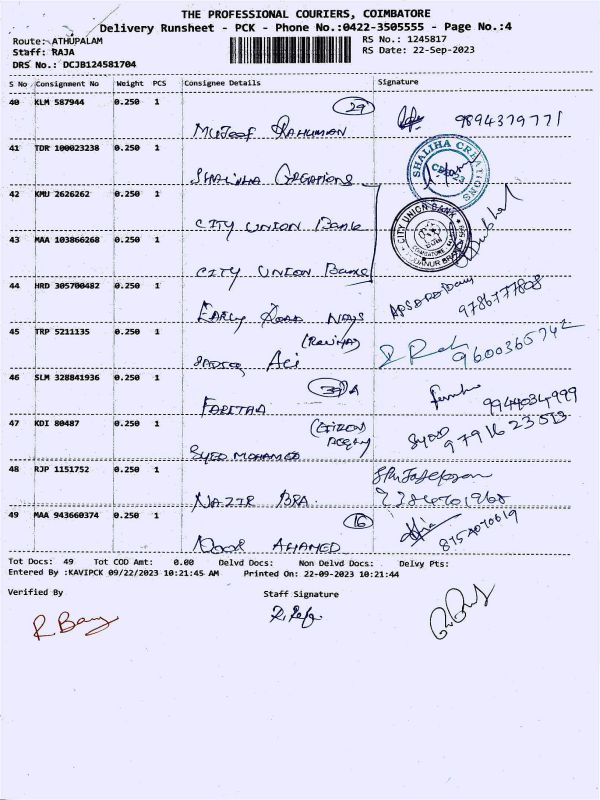 THE PROFESSIONAL COURIERS, COIMBATORE
Delivery Runsheet - PCK - Phone No.:0422-3505555 - Page No.:4
Route: ATHUPALAM
RS No.: 1245817
Staff: RAJA
RS Date: 22-Sep-2023
DRS No.: DCJB124581704
S No Consignment No Weight PCS Consignee Details Signature
40 KLM 587944 0.250 1 29
9894379771
41 TDR 100023238 0.250 1
SHALIHA CREATIONS
42 KMU 2626262 0.250 1
CITY UNION Bank
CITY UNION BANK
43 MAA 103866268 0.250 1
CITY UNION Bank
44 HRD 305700482 0.250 1
9786777808
45 TRP 5211135 0.250 1
Ali
9600365742
46 SLM 328841936 0.250 1
FARITHA
9944034999
47 KDI 80487 0.250 1
SYED MOHAMED
Syed
48 RJP 1151752 0.250 1
NAZIR
49 MAA 943660374 0.250 1 16
NOOR AHAMED
Tot Docs: 49 Tot COD Amt: 0.00 Delvd Docs: Non Delvd Docs: Delvy Pts:
Entered By :KAVIPCK 09/22/2023 10:21:45 AM Printed On: 22-09-2023 10:21:44
Verified By Staff Signature